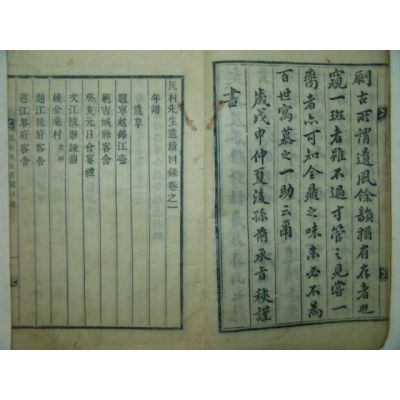 嗣古所謂遺風餘韻猶有存者也
窺一班者雖不過寸管之見嘗一
臠者亦可知全鼎之味來必不爲
百世寓慕之一助云爾
歲戊申仲夏後孫前承旨 謹
書
瓦村先生遺蹟目錄卷之一
年譜
遺草
題寧越錦江亭
題古城縣客舍
癸亥元日會宴禮
次江陵 韻
題江陵府客舍
題江陵府客舍